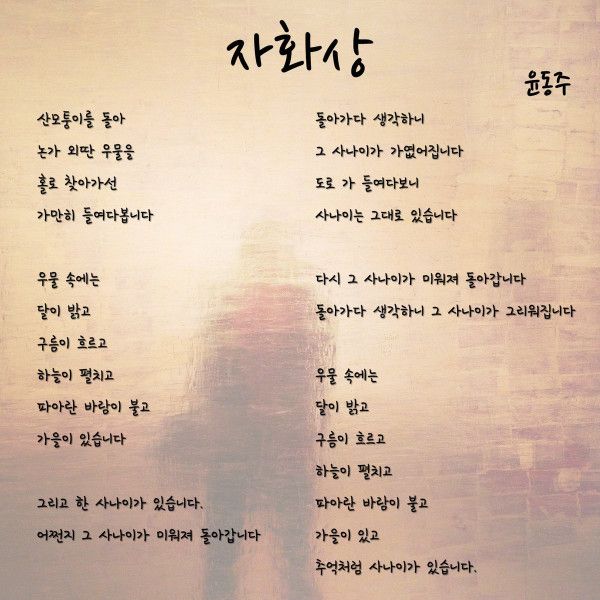 자화상
윤동주
산모퉁이를 돌아
논가 외딴 우물을
홀로 찾아가선
가만히 들여다봅니다
우물 속에는
달이 밝고
구름이 흐르고
하늘이 펼치고
파아란 바람이 불고
가을이 있습니다
그리고 한 사나이가 있습니다.
어쩐지 그 사나이가 미워져 돌아갑니다
돌아가다 생각하니
그 사나이가 가엾어집니다
도로 가 들여다보니
사나이는 그대로 있습니다
다시 그 사나이가 미워져 돌아갑니다
돌아가다 생각하니 그 사나이가 그리워집니다
우물 속에는
달이 밝고
구름이 흐르고
하늘이 펼치고
파아란 바람이 불고
가을이 있고
추억처럼 사나이가 있습니다.